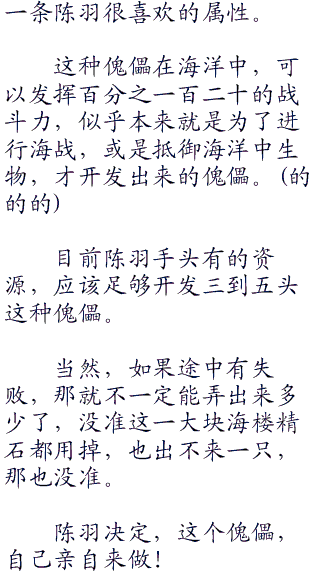 一条陈羽很喜欢的属性。
这种傀儡在海洋中，可
以发挥百分之一百二十的战
斗力，似乎本来就是为了进
行海战，或是抵御海洋中生
物，才开发出来的傀儡。(的
的的)
目前陈羽手头有的资
源，应该足够开发三到五头
这种傀儡。
当然，如果途中有失
败，那就不一定能弄出来多
少了，没准这一大块海楼精
石都用掉，也出不来一只，
那也没准。
陈羽决定，这个傀儡，
自己亲自来做！